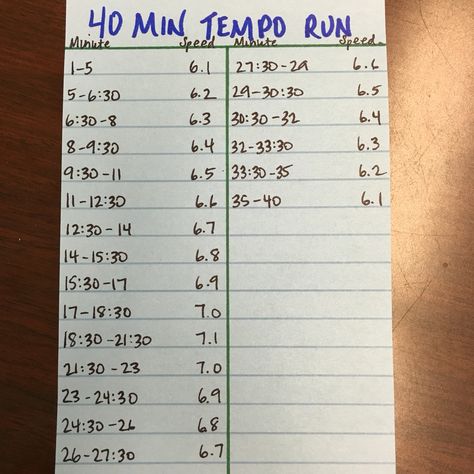 40 MIN TEMPO RUN
Minute Speed
1-5 6.1
5-6:30 6.2
6:30-8 6.3
8-9:30 6.4
9:30-11 6.5
11-12:30 6.6
12:30-14 6.7
14-15:30 6.8
15:30-17 6.9
17-18:30 7.0
18:30-21:30 7.1
21:30-23 7.0
23-24:30 6.9
24:30-26 68
26-27:30 6.7
Minute Speed
27:30-29 6.6
29-30:30 6.5
30:30-32 6.4
32-33:30 6.3
33:30-35 6.2
35-40 6.1